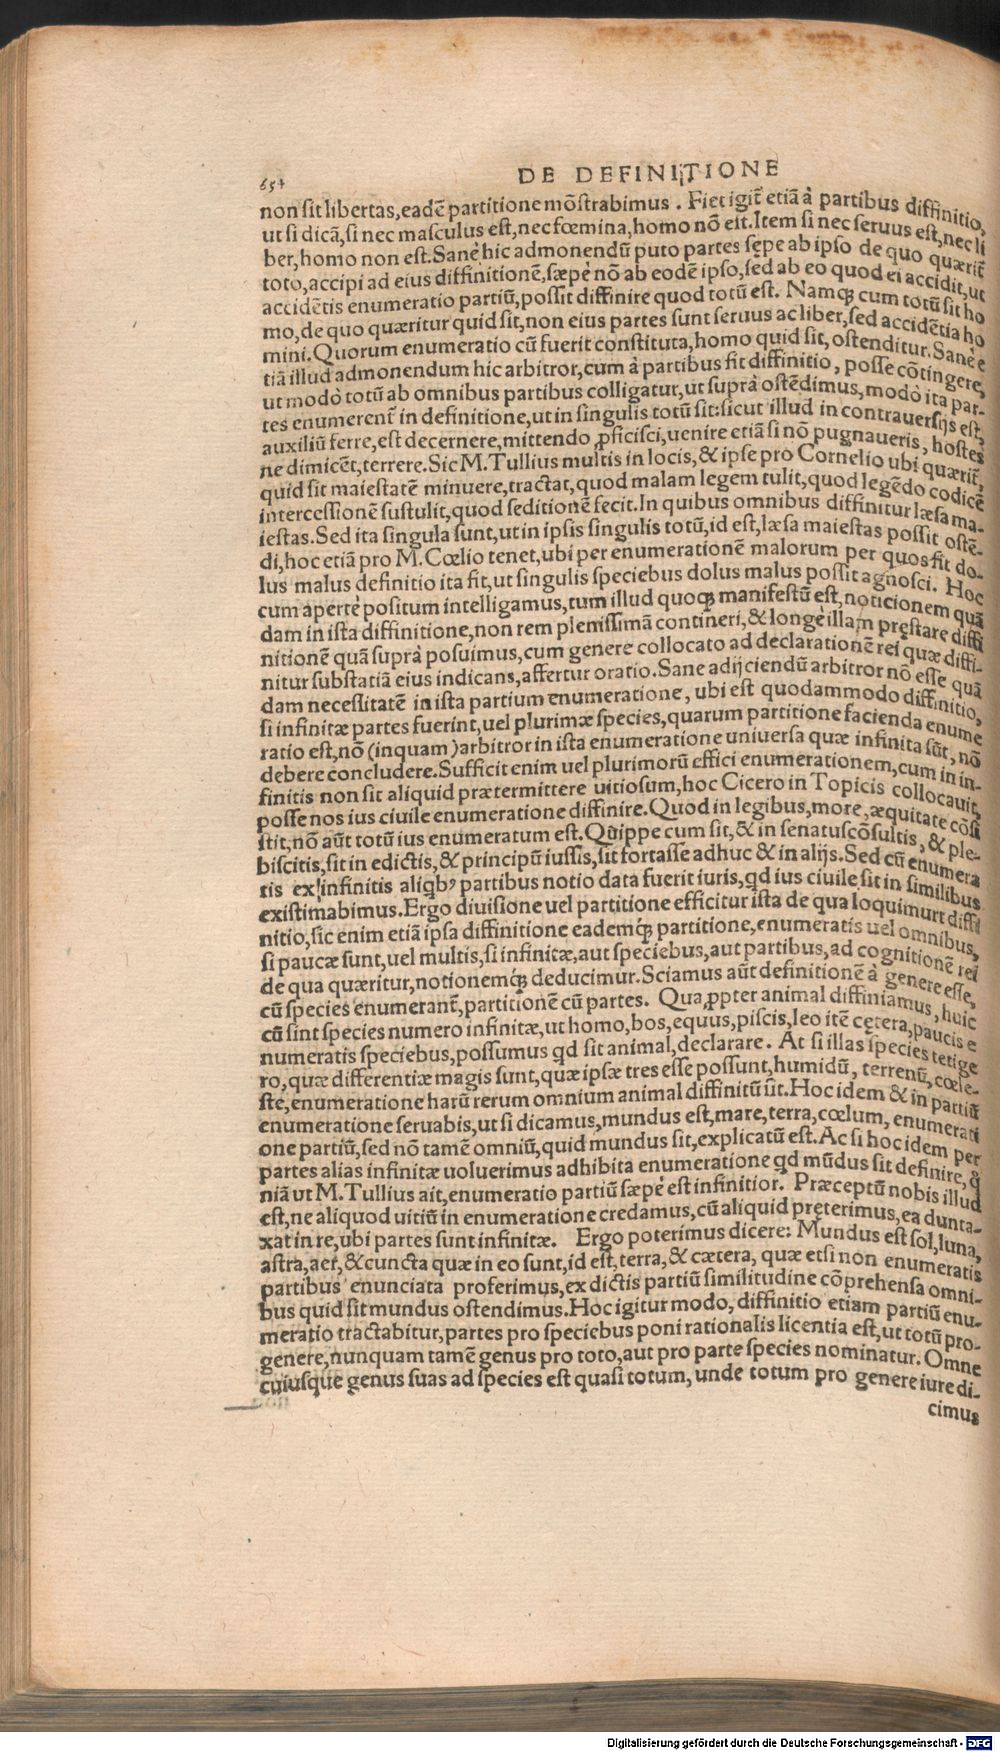 654
DE DEFINITIONE
non sit libertas,eadē partitione mōstrabimus . Fiet igit̃ etiā à partibus diffinitio,
ut si dicā,si nec masculus est,nec fœmina,homo nō eit.Item si nec seruus est,nec li
ber,homo non est.Sanè hic admonendū puto partes sępe ab ipso de quo quærit̃
toto,accipi ad eius diffinitionē,sæpe nō ab eodē ipso,sed ab eo quod ei accidit,ut
accidētis enumeratio partiū,possit diffinire quod totū est. Namq; cum totū sit ho
mo,de quo quæritur quid sit,non eius partes sunt seruus ac liber,sed accidētia ho
mini.Quorum enumeratio cū fuerit constituta,homo quid sit,ostenditur.Sanè e
tiā illud admonendum hic arbitror,cum à partibus fit diffinitio, posse cōtingere,
ut modò totū ab omnibus partibus colligatur,ut suprà ostēdimus,modò ita par-
tes enumerent̃ in definitione,ut in singulis totū sit:sicut illud in contrauersijs est,
auxiliū ferre,est decernere,mittendo ꝓficisci,uenire etiā si nō pugnaueris, hostes
ne dimicēt,terrere.Sic M.Tullius multis in locis,& ipse pro Cornelio ubi quærit̃,
quid sit maiestatē minuere,tractat,quod malam legem tulit,quod legēdo codicē
intercessionē sustulit,quod seditionē fecit.In quibus omnibus diffinitur læsa ma-
iestas.Sed ita singula sunt,ut in ipsis singulis totū,id est,læsa maiestas possit ostē-
di,hoc etiā pro M.Cœlio tenet,ubi per enumerationē malorum per quos fit do-
lus malus definitio ita fit,ut singulis speciebus dolus malus possit agnosci. Hoc
cum apertè positum intelligamus,tum illud quoq; manifestū est,noticionem quā
dam in ista diffinitione,non rem plenissimā contineri,& longè illam pręstare diffi
nitionē quā suprà posuimus,cum genere collocato ad declarationē rei quæ diffi-
nitur substatiā eius indicans,affertur oratio.Sane adijciendū arbitror nō esse quā
dam necessitatē in ista partium enumeratione, ubi est quodammodo diffinitio,
si infinitæ partes fuerint,uel plurimæ species,quarum partitione facienda enume
ratio est,nō (inquam)arbitror in ista enumeratione uniuersa quæ infinita sūt, nō
debere concludere.Sufficit enim uel plurimorū effici enumerationem,cum in in-
finitis non sit aliquid prætermittere uitiosum,hoc Cicero in Topicis collocauit,
posse nos ius ciuile enumeratione diffinire.Quod in legibus,more,æquitate cōsi
stit,nō aūt totū ius enumeratum est.Quippe cum sit,& in senatuscōsultis, & ple-
biscitis,sit in edictis,& principū iussis,sit fortasse adhuc & in alijs.Sed cū enumera
tis ex infinitis aliqbꝰ partibus notio data fuerit iuris,qd ius ciuile sit in similibus
existimabimus.Ergo diuisione uel partitione efficitur ista de qua loquimurt diffi
nitio,sic enim etiā ipsa diffinitione eademq́; partitione,enumeratis uel omnibus,
si paucæ sunt,uel multis,si infinitæ,aut speciebus,aut partibus,ad cognitionē rei
de qua quæritur,notionemq́; deducimur.Sciamus aūt definitionē à genere esse,
cū species enumerant̃,partitionē cū partes. Quaꝓpter animal diffiniamus, huic
cū sint species numero infinitæ,ut homo,bos,equus,piscis,leo itē cętera,paucis e
numeratis speciebus,possumus qd sit animal,declarare. At si illas species tetige
ro,quæ differentiæ magis sunt,quæ ipsæ tres esse possunt,humidū, terrenū, cœle-
ste,enumeratione harū rerum omnium animal diffinitū ūt.Hoc idem & in partiū
enumeratione seruabis,ut si dicamus,mundus est,mare,terra,cœlum, enumerati
one partiū,sed nō tamē omniū,quid mundus sit,explicatū est.Ac si hoc idem per
partes alias infinitæ uoluerimus adhibita enumeratione qd mūdus sit definire,q̃
niā ut M.Tullius ait,enumeratio partiū sæpè est infinitior. Præceptū nobis illud
est,ne aliquod uitiū in enumeratione credamus,cū aliquid pręterimus,ea dunta-
xat in re,ubi partes sunt infinitæ. Ergo poterimus dicere: Mundus est sol,luna,
astra,aer,& cuncta quæ in eo sunt,id est,terra,& cætera, quæ etsi non enumeratis
partibus enunciata proferimus,ex dictis partiū similitudine cōprehensa omni-
bus quid sit mundus ostendimus.Hoc igitur modo, diffinitio etiam partiū enu-
meratio tractabitur,partes pro speciebus poni rationalis licentia est,ut totū pro-
genere,nunquam tamē genus pro toto,aut pro parte species nominatur. Omne
cuiusque genus suas ad species est quasi totum, unde totum pro genere iure di-
cimus
Digitalisierung gefördert durch die Deutsche Forschungsgemeinschaft - DFG